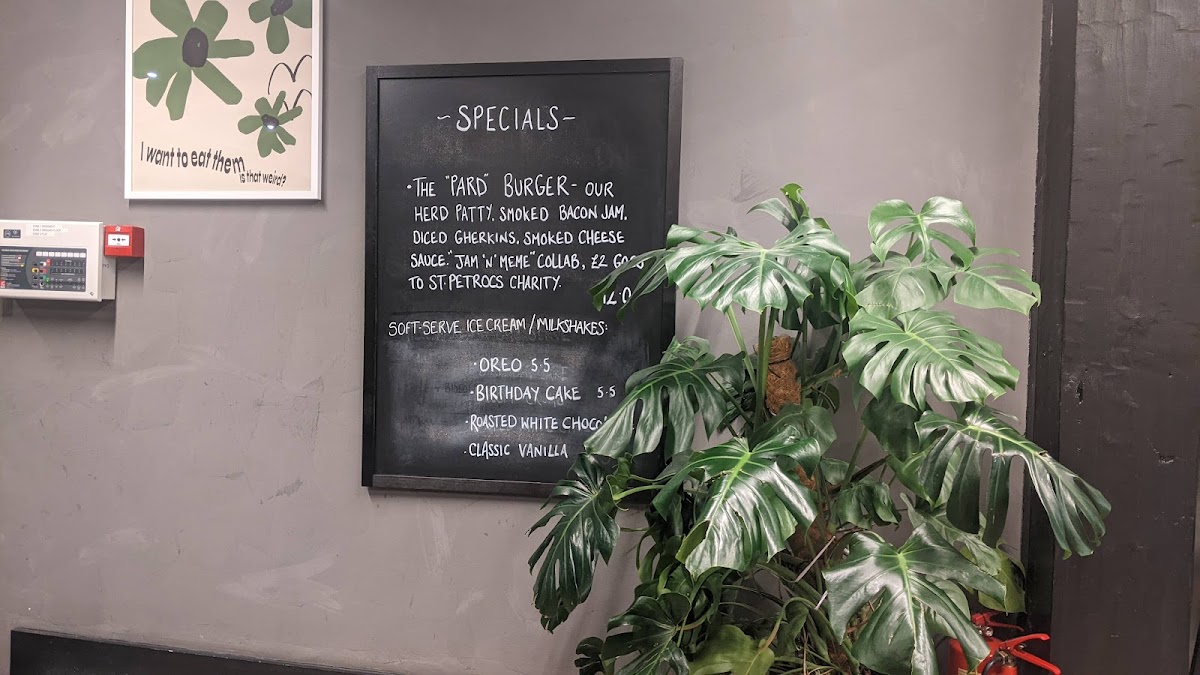 I want to eat them
is that weird?
~ SPECIALS ~
· THE "PARD" BURGER - OUR
HERD PATTY. SMOKED BACON JAM.
DICED GHERKINS. SMOKED CHEESE
SAUCE. "JAM 'N' MEME" COLLAB, £2 GOES
TO ST. PETROCS CHARITY.
SOFT-SERVE ICE CREAM / MILKSHAKES:
· OREO 5.5
· BIRTHDAY CAKE 5.5
· ROASTED WHITE
· CLASSIC VANILLA